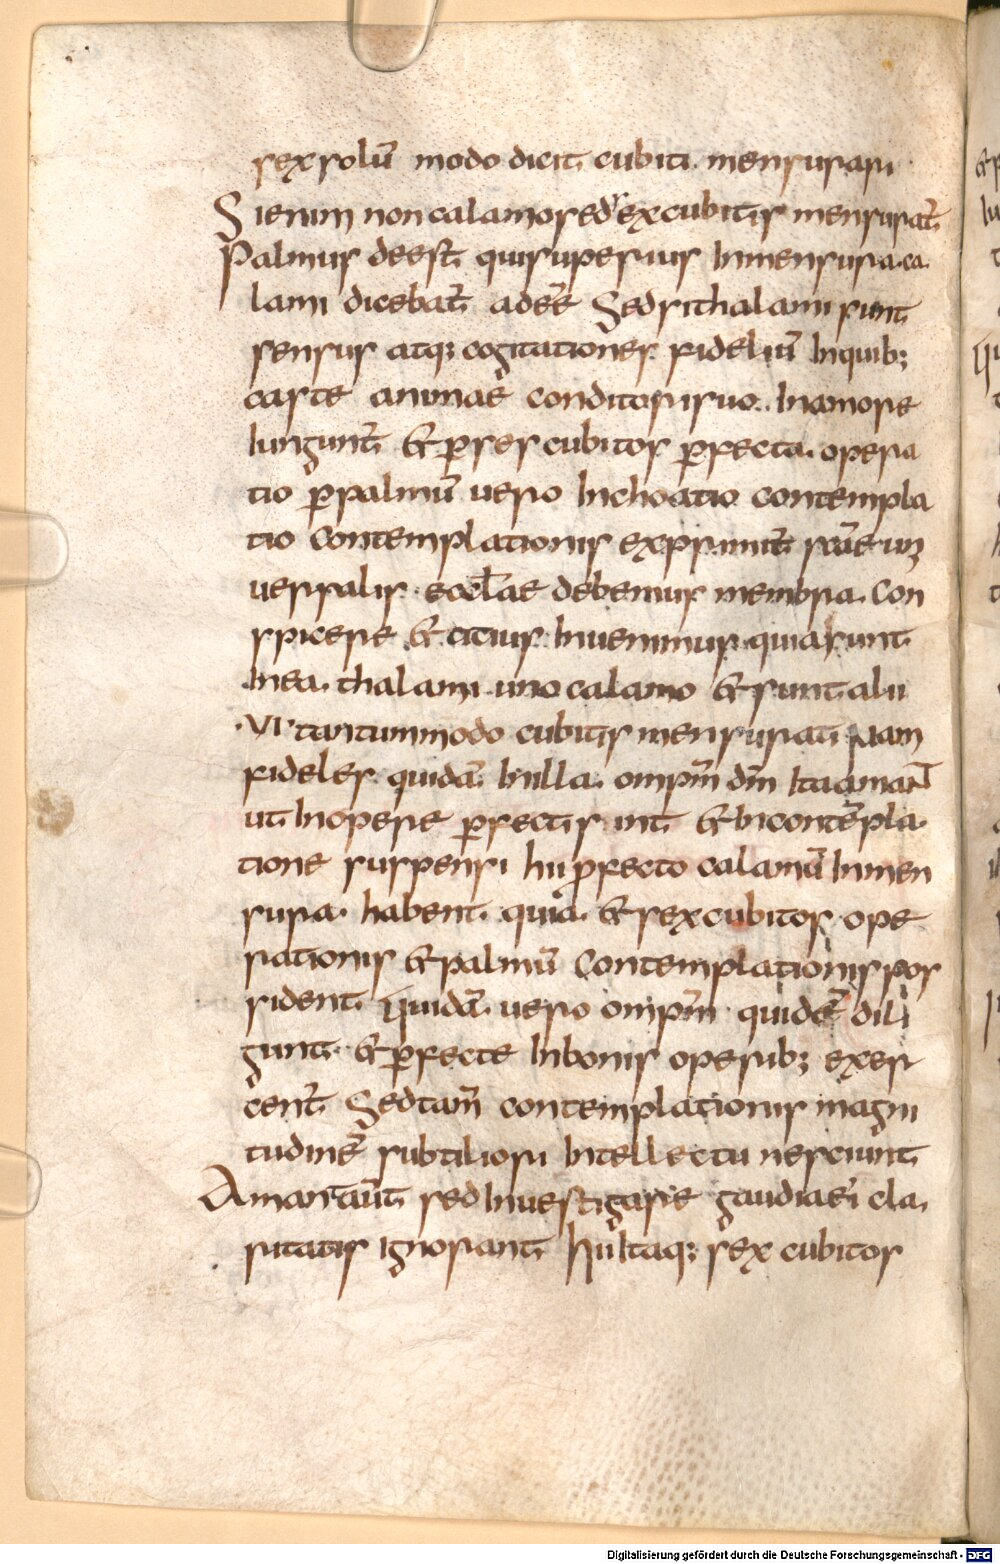 sex solū modo dicit cubiti mensurari
Si enim non calamo sed ex cubitis mensurat̄
Palmus deest qui superius in mensura ca
lami dicebat̄ adeē Sed si thalami sunt
sensus atq; cogitationes fidelium̄ In quib;
caste animae conditori suo In amore
Iungunt̄ & ꝑ sex cubitos ꝑfecta opera
tio ꝑ palmū uero Inchoatio contempla
tio contemplationis exprimit̄ scāe uni
uersalis eccłae debemus membra Con
spicere & citius Inuenimus quia sunt
In ea thalami uno calamo & sunt alii
·VI· tantummodo cubitis mensurati Nam
fideles quidā In illa omīpm dm̄ Ita amant
ut In opere ꝑfectis int & In contēpla
tione suspensi hii ꝓfecto calamū In men
sura habent quia & sex cubitos ope
rationis & palmū Contemplationis pos
sident Quidā uero omīpm quidē dili
gunt & ꝑfecte In bonis operib; exer
cent̄ Sed tam̄ contemplationis magni
tudinē subtiliori Intellectu nesciunt
Amant aūt sed Inuestigare gaudia ei cla
ritatis ignorant hii Itaq; sex cubitos
Digitalisierung gefördert durch die Deutsche Forschungsgemeinschaft - DFG